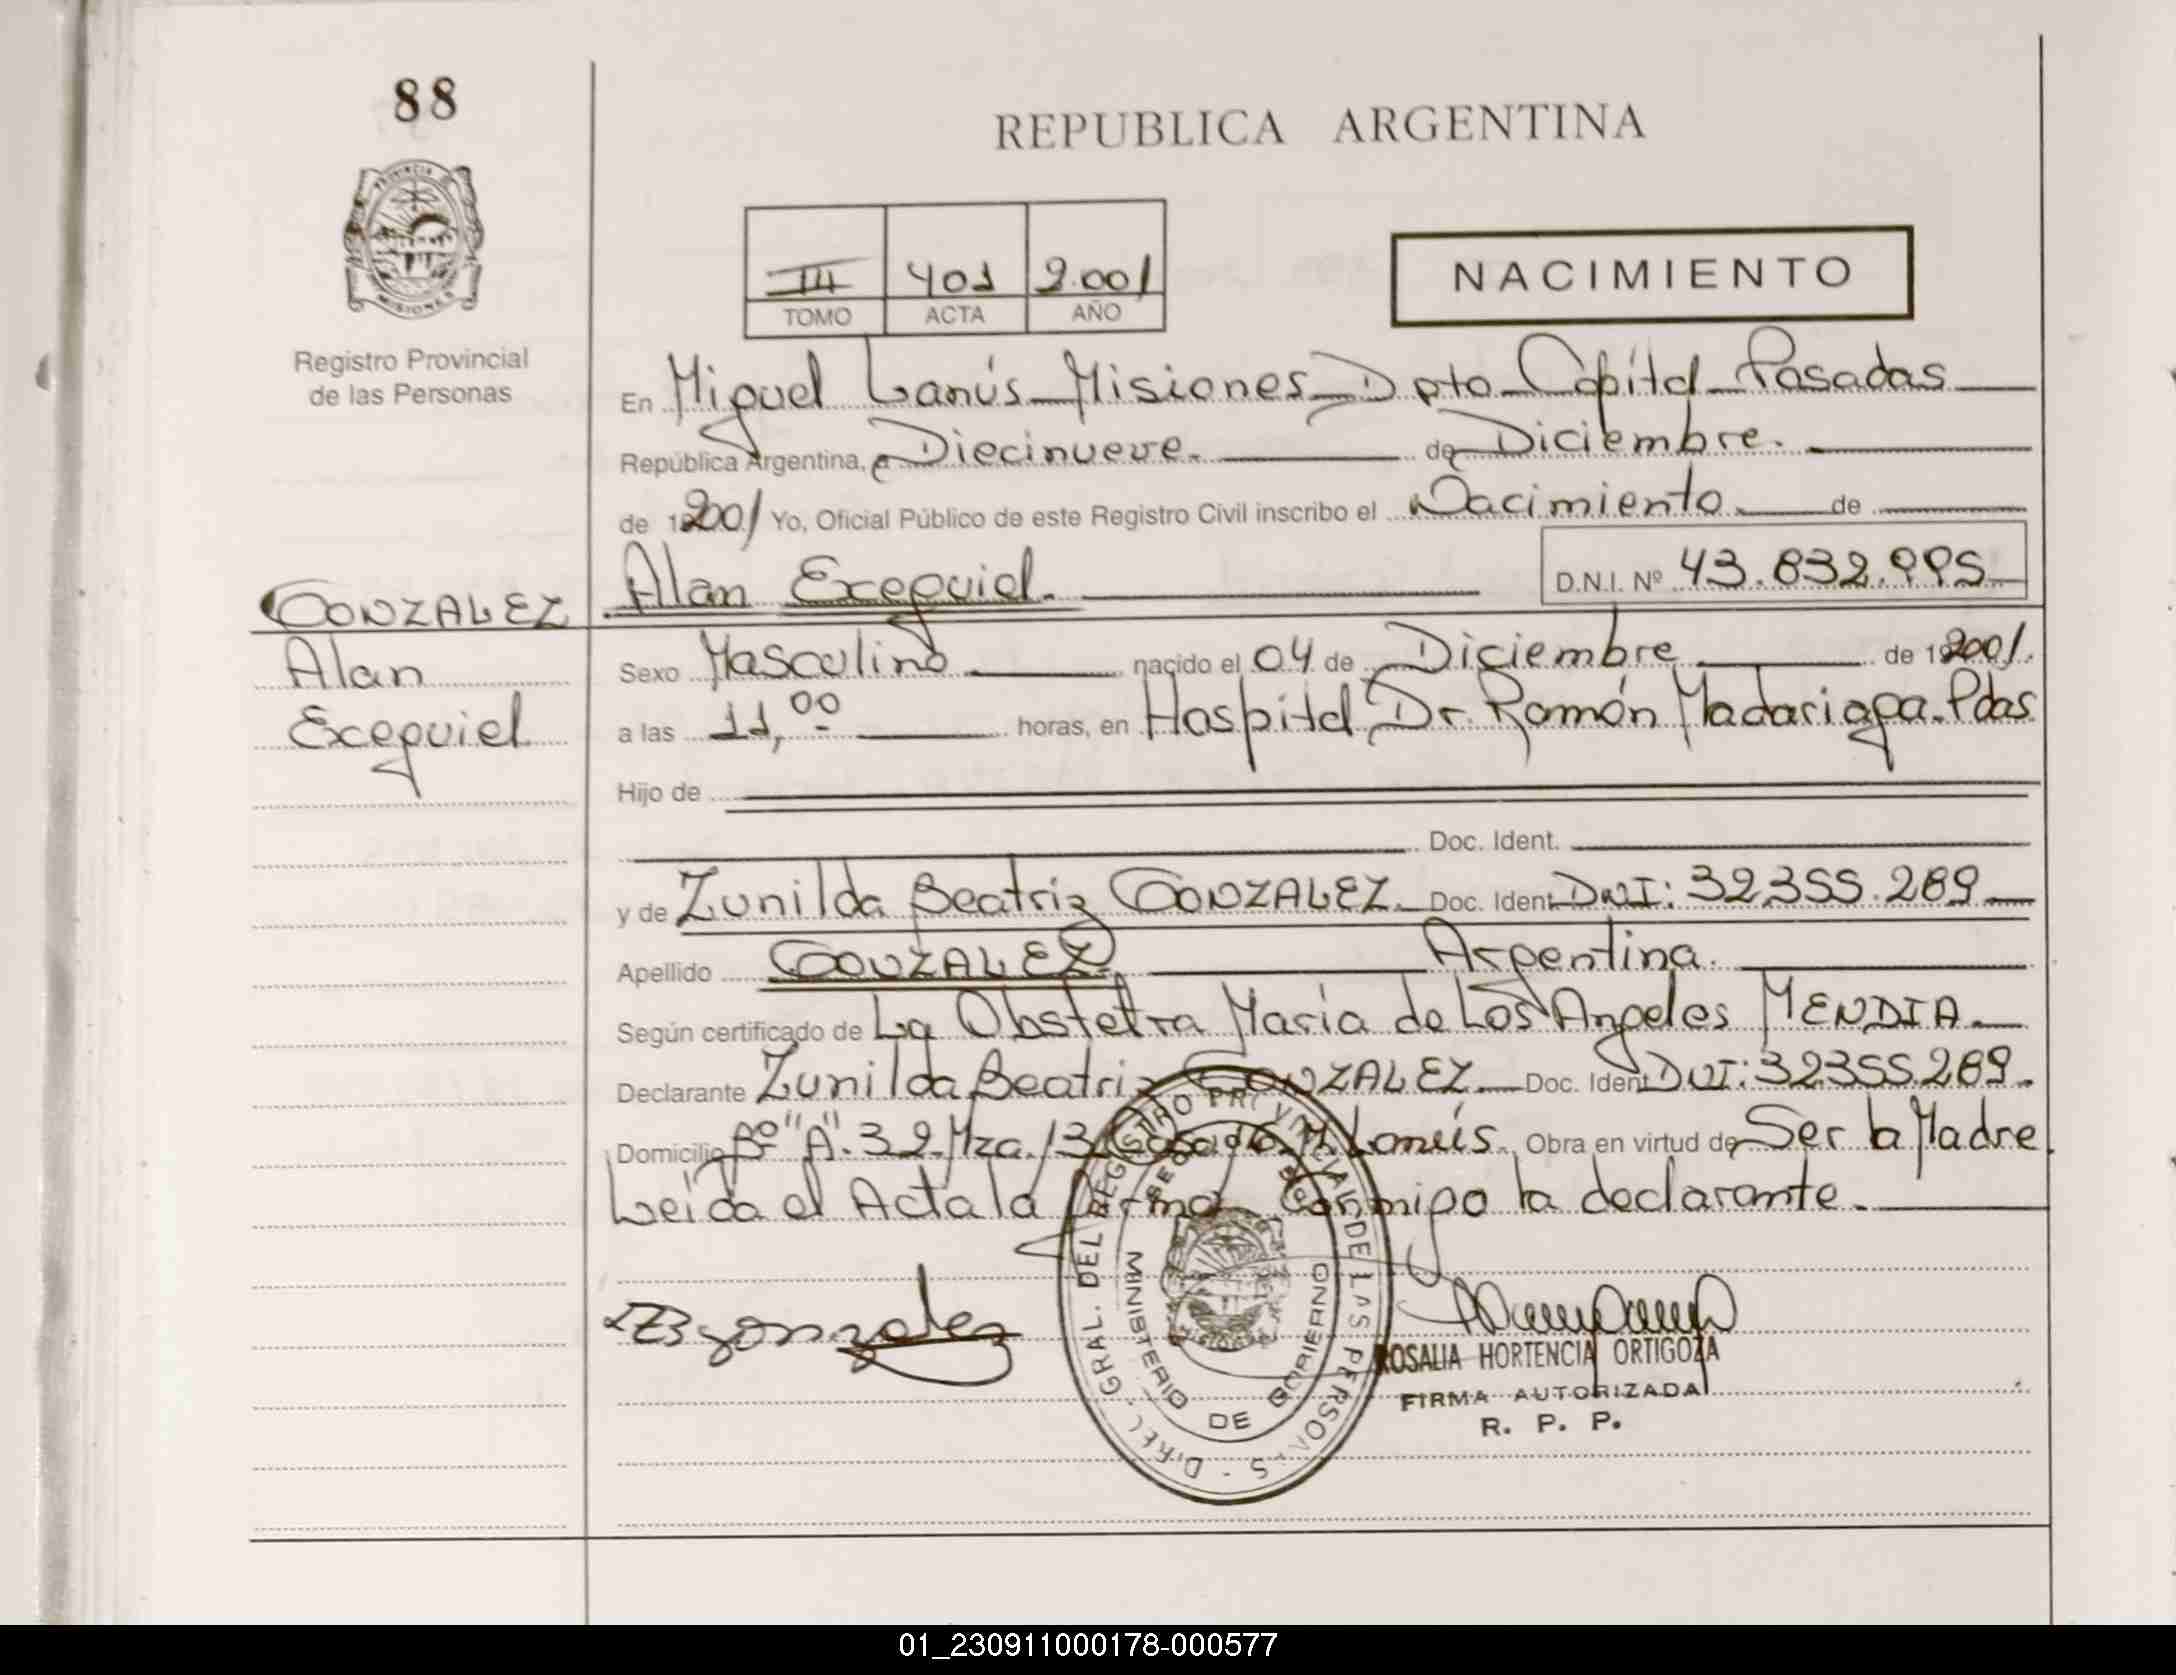 88
REPUBLICA ARGENTINA
PROVINCIA
MISIONES
Registro Provincial
de las Personas
III 401 2.001
TOMO ACTA AÑO
NACIMIENTO
En Miguel Lanús Misiones Dpto Capital Posadas
República Argentina, a Diecinueve. de Diciembre.
de 2001 Yo, Oficial Público de este Registro Civil inscribo el Nacimiento de
Alan Exequiel. D.N.I. Nº 43.832.995
GONZALEZ
Alan
Exequiel
Sexo Masculino nacido el 04 de Diciembre de 2001.
a las 11,00 horas, en Hospital Dr. Ramón Madariaga. Pdas
Hijo de
Doc. Ident.
y de Zunilda Beatriz GONZALEZ. Doc. Ident DNI: 32.355.289
Apellido GONZALEZ. Argentina.
Según certificado de La Obstetra María de Los Angeles MENDIA.
Declarante Zunilda Beatriz GONZALEZ Doc. Ident DNI: 32355.289.
Domicilio Bº "A". 32. Mza. 13 M. Lanús. Obra en virtud de Ser la Madre.
Leída el Acta la firma Conmigo la declarante.
ZBgonzalez
ROSALIA HORTENCIA ORTIGOZA
FIRMA AUTORIZADA
R. P. P.
DIREC. GRAL. DEL REGISTRO PROVINCIAL DE LAS PERSONAS
MINISTERIO DE GOBIERNO
01_230911000178-000577